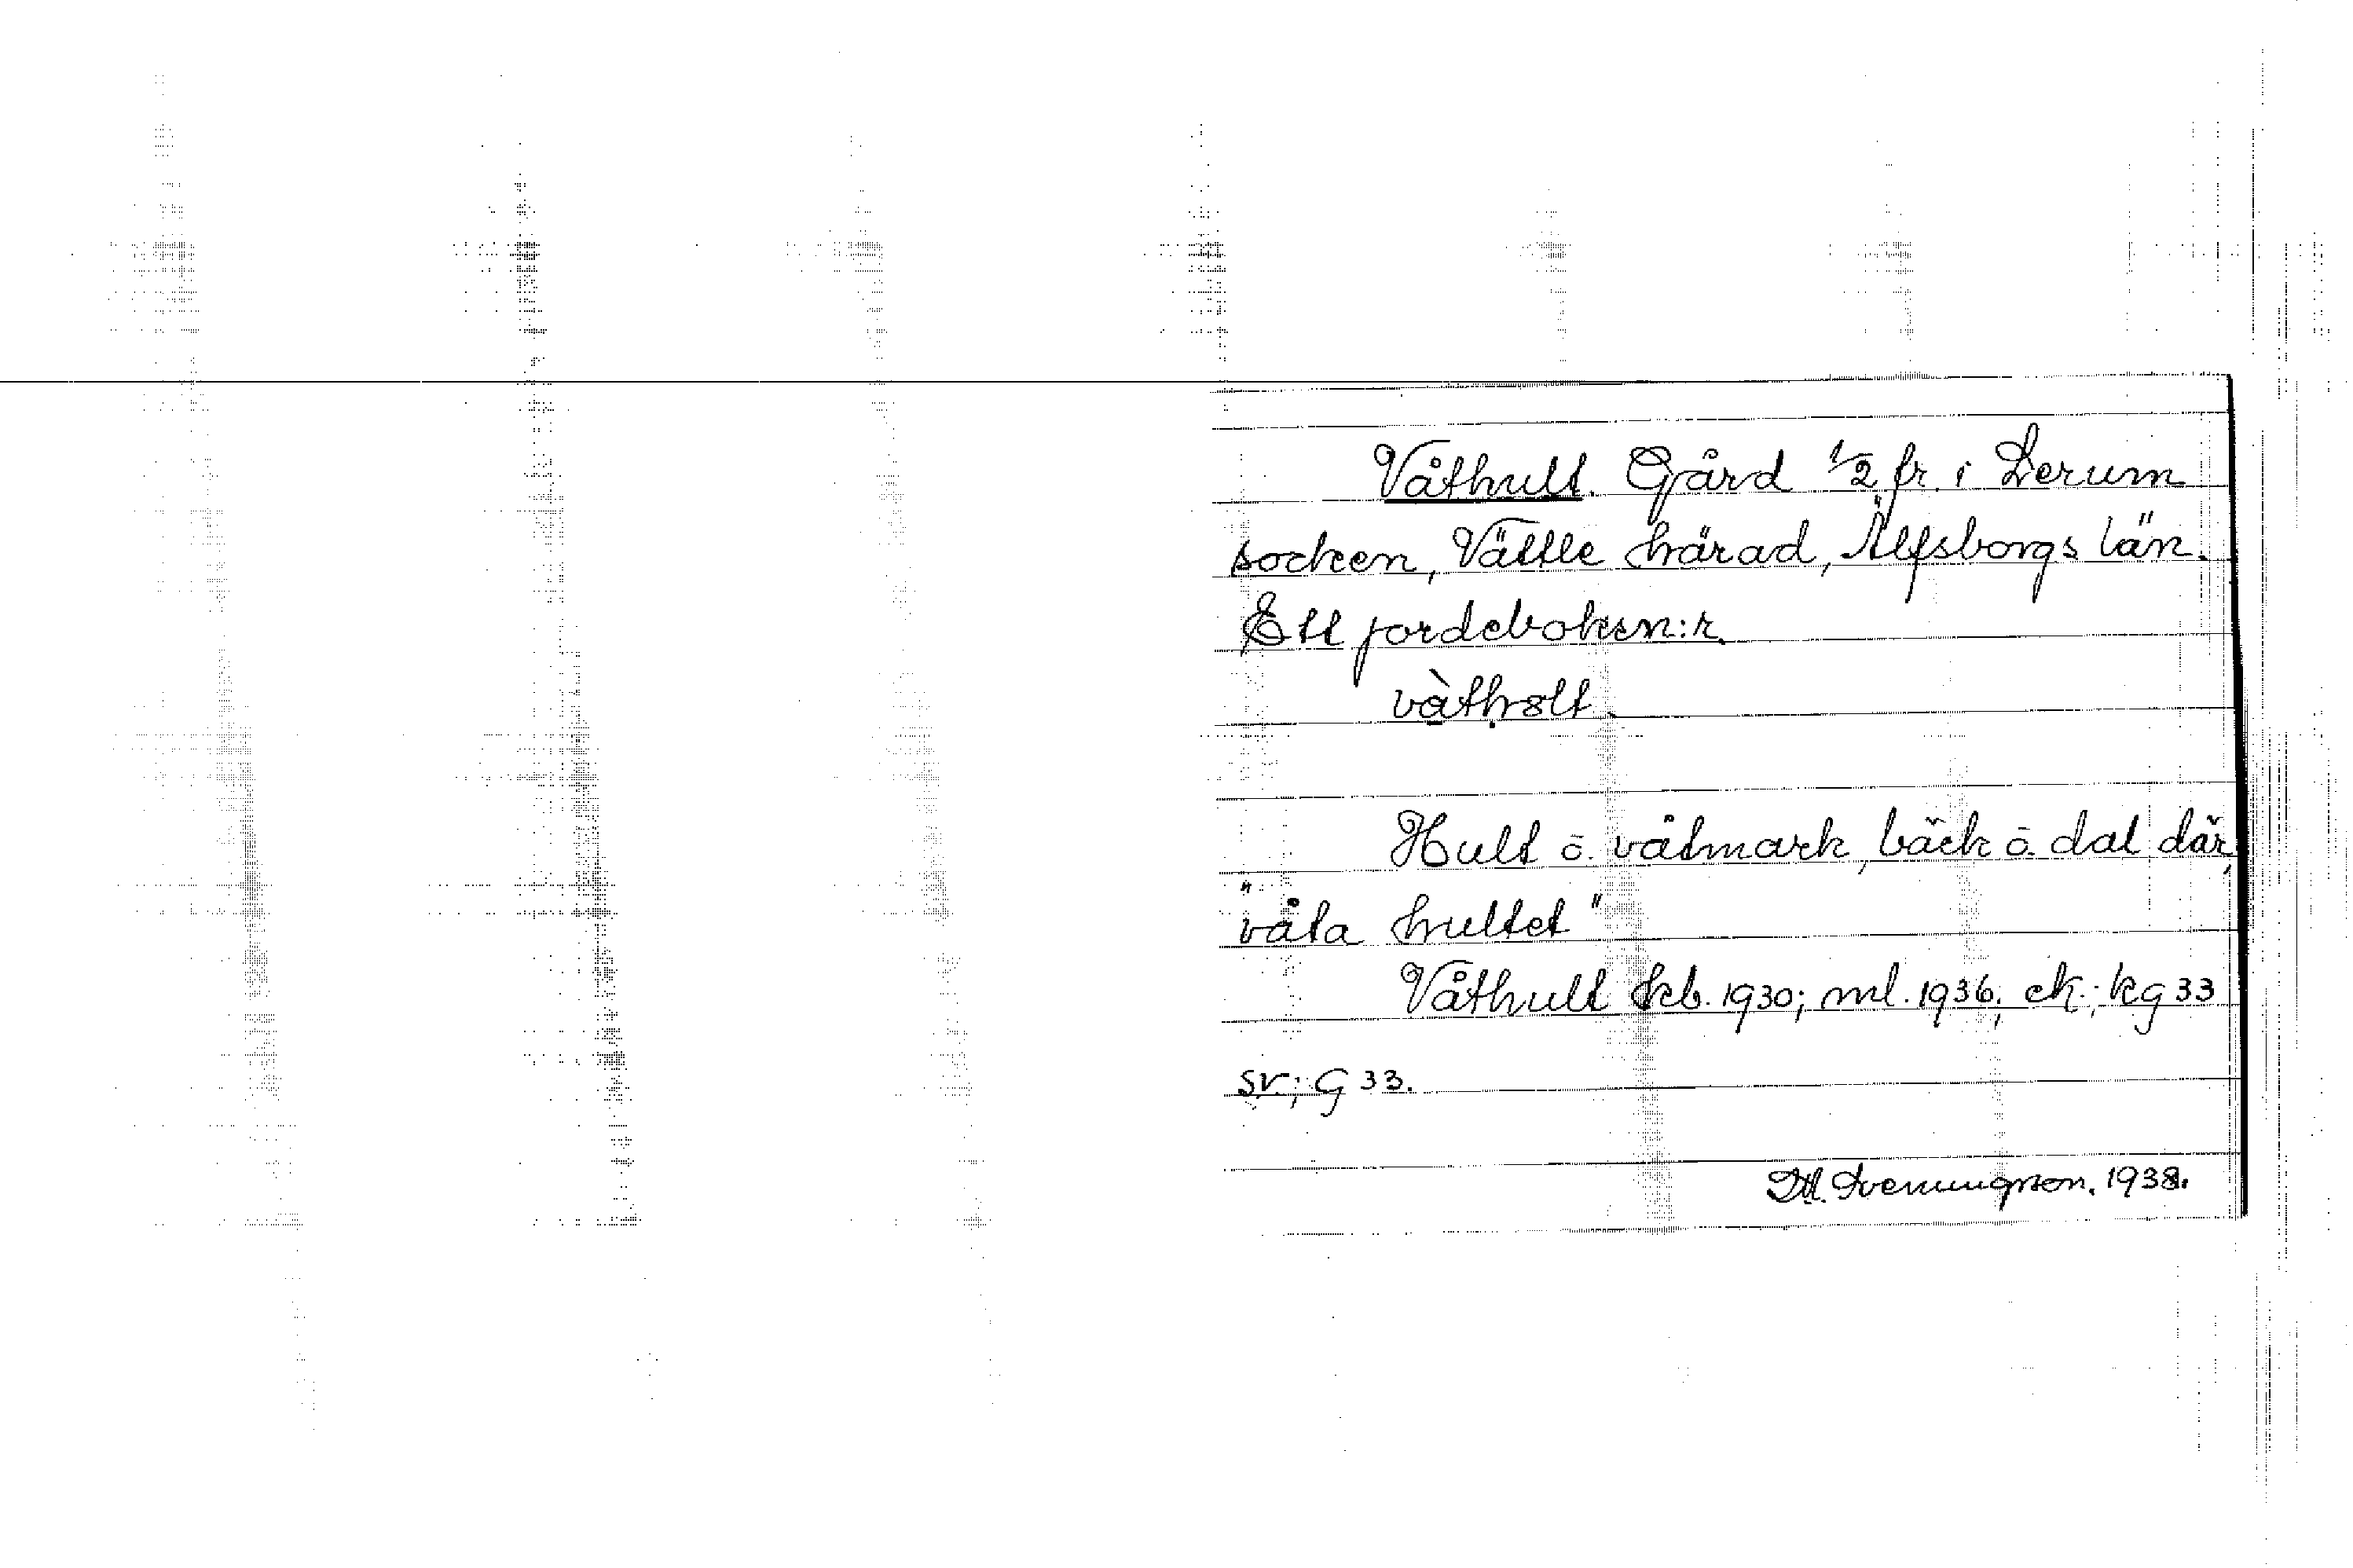 Våthult. Gård 1/2 fr. i Lerum
socken, Vättle härad, Älfsborgs län.
Ett jordeboken:r.
vàthɷlt.
Hult ō. våtmark, bäck ō dal där,
"våta hultet"
Våthult kb. 1930; ml. 1936; ek.; kg 33
sv.; G 33.
Svenungson. 1938.